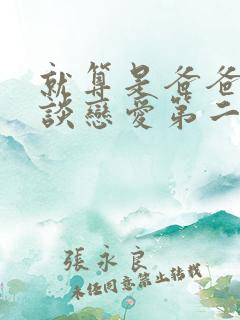 就算是爸爸
談戀愛第二
張永良
未經同意禁止轉載